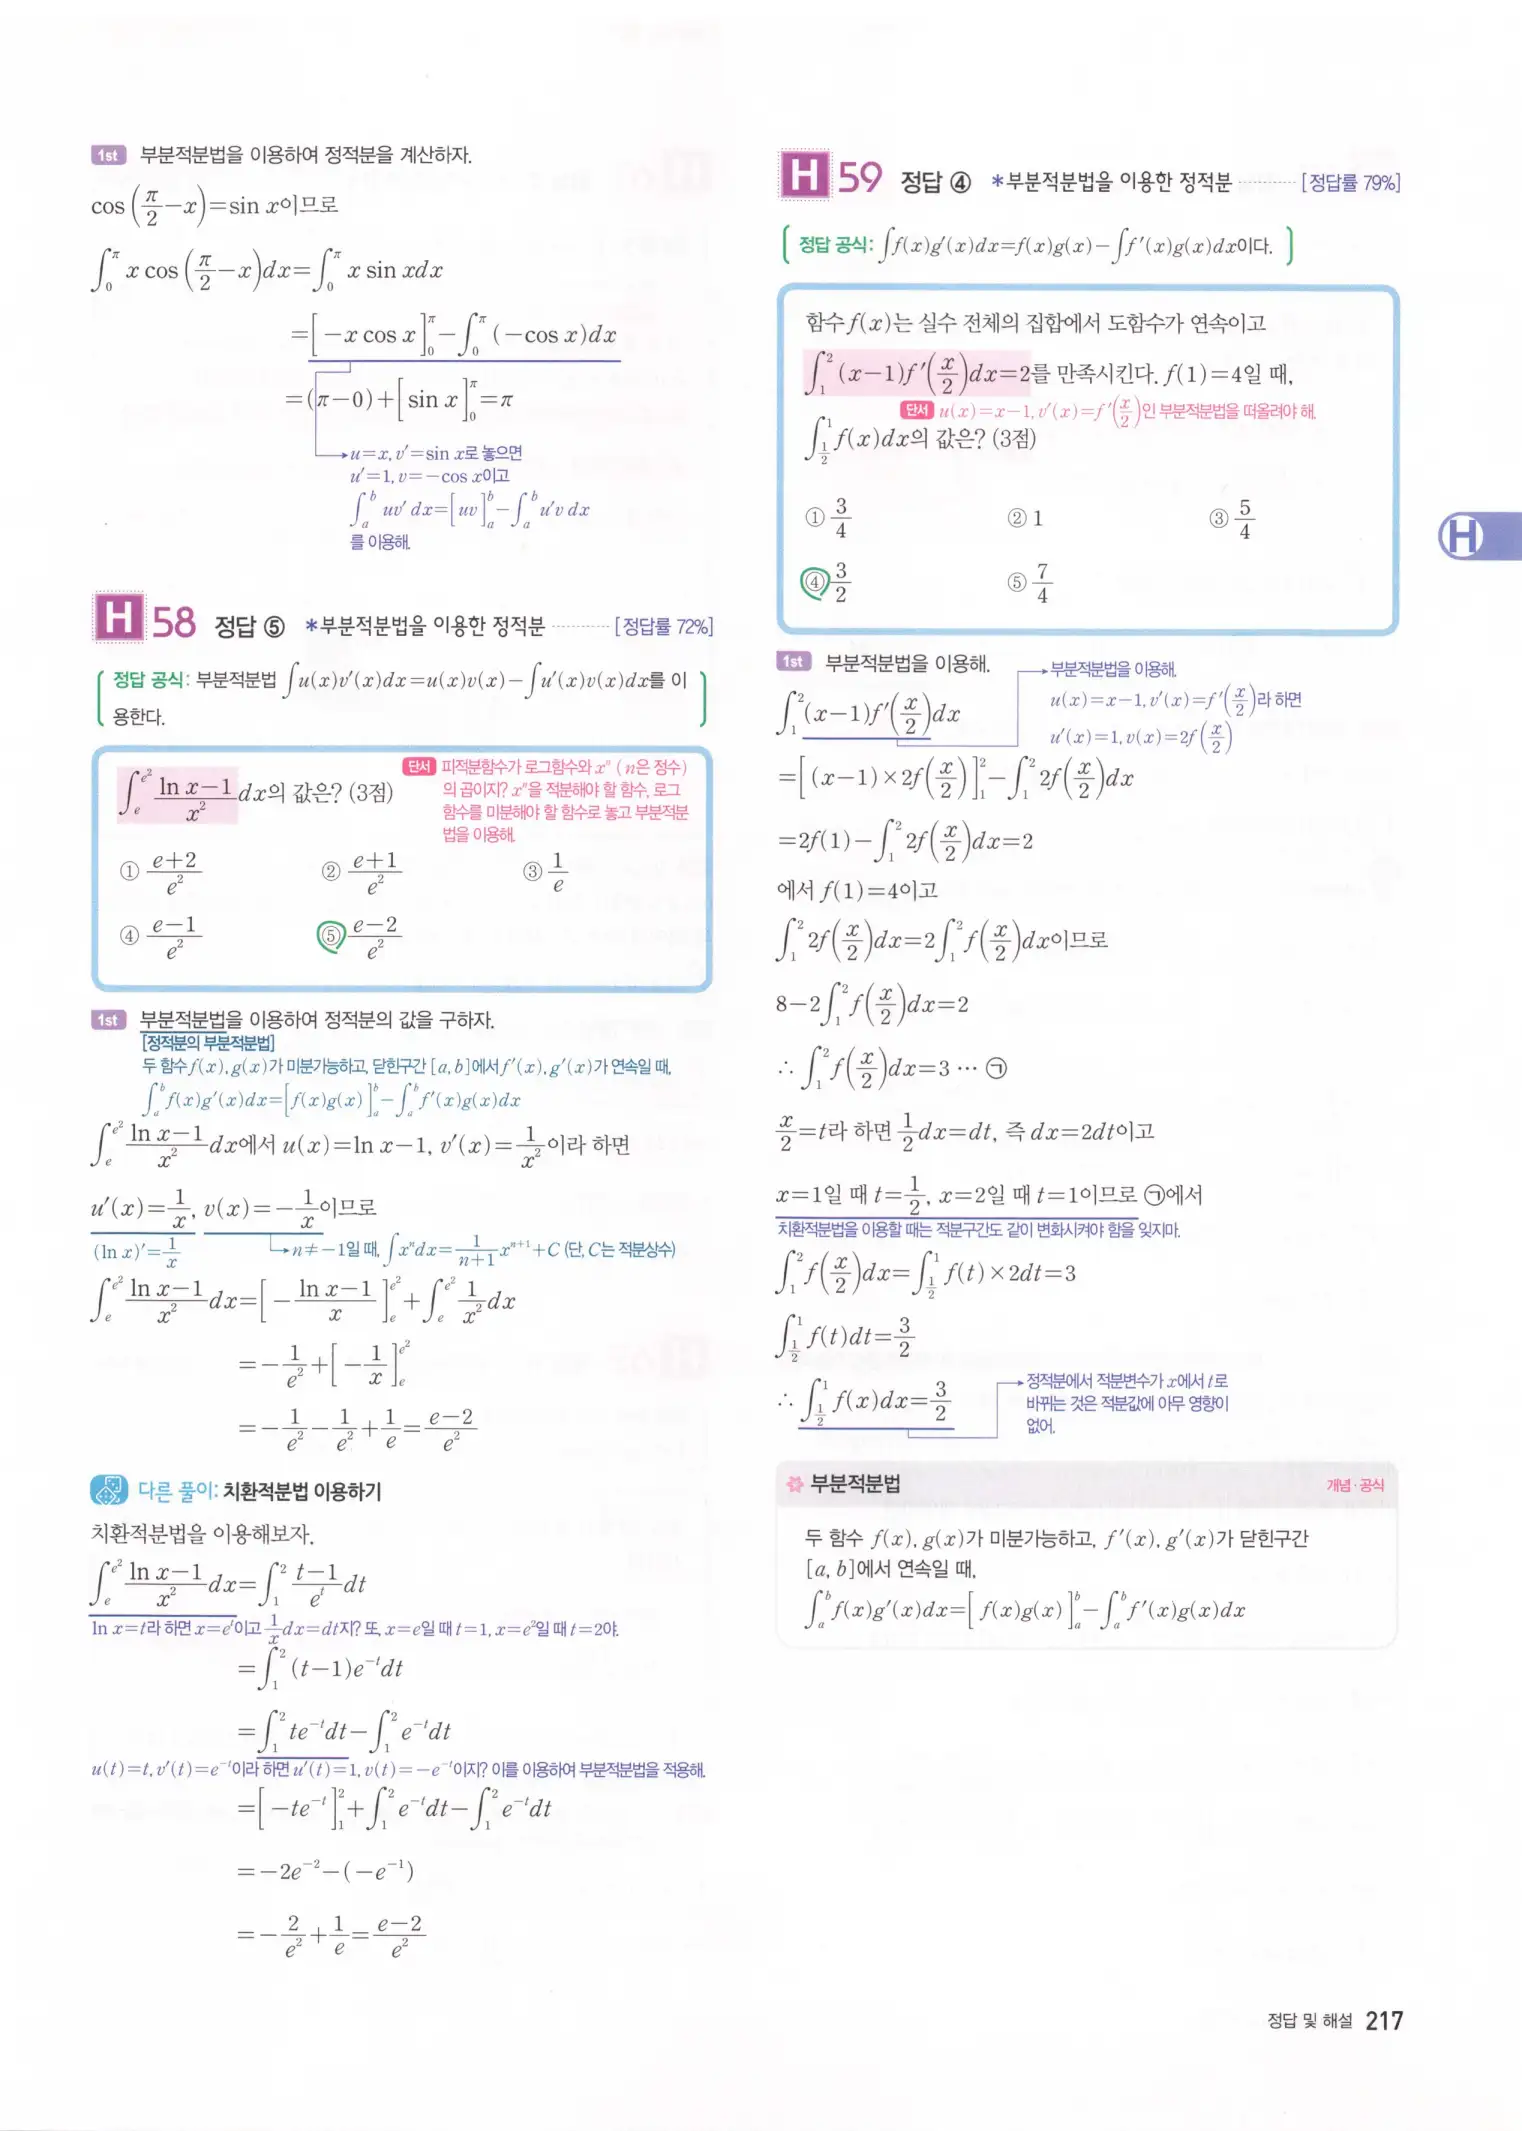 1st 부분적분법을 이용하여 정적분을 계산하자.
cos(π/2−x)=sin x이므로
∫₀^π x cos(π/2−x)dx=∫₀^π x sin xdx
=[−x cos x]₀^π−∫₀^π (−cos x)dx
=(π−0)+[sin x]₀^π=π
u=x, v′=sin x로 놓으면
u′=1, v=−cos x이고
∫ₐ^b uv′ dx=[uv]ₐ^b−∫ₐ^b u′v dx
를 이용해.
H 58 정답 ⑤ *부분적분법을 이용한 정적분 ············ [정답률 72%]
정답 공식: 부분적분법 ∫u(x)v′(x)dx=u(x)v(x)−∫u′(x)v(x)dx를 이
용한다.
∫ₑ^(e²) (ln x−1)/x² dx의 값은? (3점)
단서 피적분함수가 로그함수와 xⁿ (n은 정수)
의 곱이지? xⁿ을 적분해야 할 함수, 로그
함수를 미분해야 할 함수로 놓고 부분적분
법을 이용해.
① (e+2)/e² ② (e+1)/e² ③ 1/e
④ (e−1)/e² ⑤ (e−2)/e²
1st 부분적분법을 이용하여 정적분의 값을 구하자.
[정적분의 부분적분법]
두 함수 f(x), g(x)가 미분가능하고, 닫힌구간 [a, b]에서 f′(x), g′(x)가 연속일 때,
∫ₐ^b f(x)g′(x)dx=[f(x)g(x)]ₐ^b−∫ₐ^b f′(x)g(x)dx
∫ₑ^(e²) (ln x−1)/x² dx에서 u(x)=ln x−1, v′(x)=1/x²이라 하면
u′(x)=1/x, v(x)=−1/x이므로
(ln x)′=1/x n≠−1일 때, ∫xⁿdx=1/(n+1) xⁿ⁺¹+C (단, C는 적분상수)
∫ₑ^(e²) (ln x−1)/x² dx=[−(ln x−1)/x]ₑ^(e²)+∫ₑ^(e²) 1/x² dx
=−1/e²+[−1/x]ₑ^(e²)
=−1/e²−1/e²+1/e=(e−2)/e²
다른 풀이: 치환적분법 이용하기
치환적분법을 이용해보자.
∫ₑ^(e²) (ln x−1)/x² dx=∫₁² (t−1)/eᵗ dt
ln x=t라 하면 x=eᵗ이고 1/x dx=dt지? 또, x=e일 때 t=1, x=e²일 때 t=2야.
=∫₁² (t−1)e⁻ᵗdt
=∫₁² te⁻ᵗdt−∫₁² e⁻ᵗdt
u(t)=t, v′(t)=e⁻ᵗ이라 하면 u′(t)=1, v(t)=−e⁻ᵗ이지? 이를 이용하여 부분적분법을 적용해.
=[−te⁻ᵗ]₁²+∫₁² e⁻ᵗdt−∫₁² e⁻ᵗdt
=−2e⁻²−(−e⁻¹)
=−2/e²+1/e=(e−2)/e²
H 59 정답 ④ *부분적분법을 이용한 정적분 ············ [정답률 79%]
정답 공식: ∫f(x)g′(x)dx=f(x)g(x)−∫f′(x)g(x)dx이다.
함수 f(x)는 실수 전체의 집합에서 도함수가 연속이고
∫₁² (x−1)f′(x/2)dx=2를 만족시킨다. f(1)=4일 때,
단서 u(x)=x−1, v′(x)=f′(x/2)인 부분적분법을 떠올려야 해.
∫_(1/2)^1 f(x)dx의 값은? (3점)
① 3/4 ② 1 ③ 5/4
④ 3/2 ⑤ 7/4
1st 부분적분법을 이용해.
부분적분법을 이용해.
u(x)=x−1, v′(x)=f′(x/2)라 하면
u′(x)=1, v(x)=2f(x/2)
∫₁² (x−1)f′(x/2)dx
=[(x−1)×2f(x/2)]₁²−∫₁² 2f(x/2)dx
=2f(1)−∫₁² 2f(x/2)dx=2
에서 f(1)=4이고
∫₁² 2f(x/2)dx=2∫₁² f(x/2)dx이므로
8−2∫₁² f(x/2)dx=2
∴ ∫₁² f(x/2)dx=3 ··· ㉠
x/2=t라 하면 1/2 dx=dt, 즉 dx=2dt이고
x=1일 때 t=1/2, x=2일 때 t=1이므로 ㉠에서
치환적분법을 이용할 때는 적분구간도 같이 변화시켜야 함을 잊지마.
∫₁² f(x/2)dx=∫_(1/2)^1 f(t)×2dt=3
∫_(1/2)^1 f(t)dt=3/2
∴ ∫_(1/2)^1 f(x)dx=3/2
정적분에서 적분변수가 x에서 t로
바뀌는 것은 적분값에 아무 영향이
없어.
부분적분법 개념·공식
두 함수 f(x), g(x)가 미분가능하고, f′(x), g′(x)가 닫힌구간
[a, b]에서 연속일 때,
∫ₐ^b f(x)g′(x)dx=[f(x)g(x)]ₐ^b−∫ₐ^b f′(x)g(x)dx
H
정답 및 해설 217